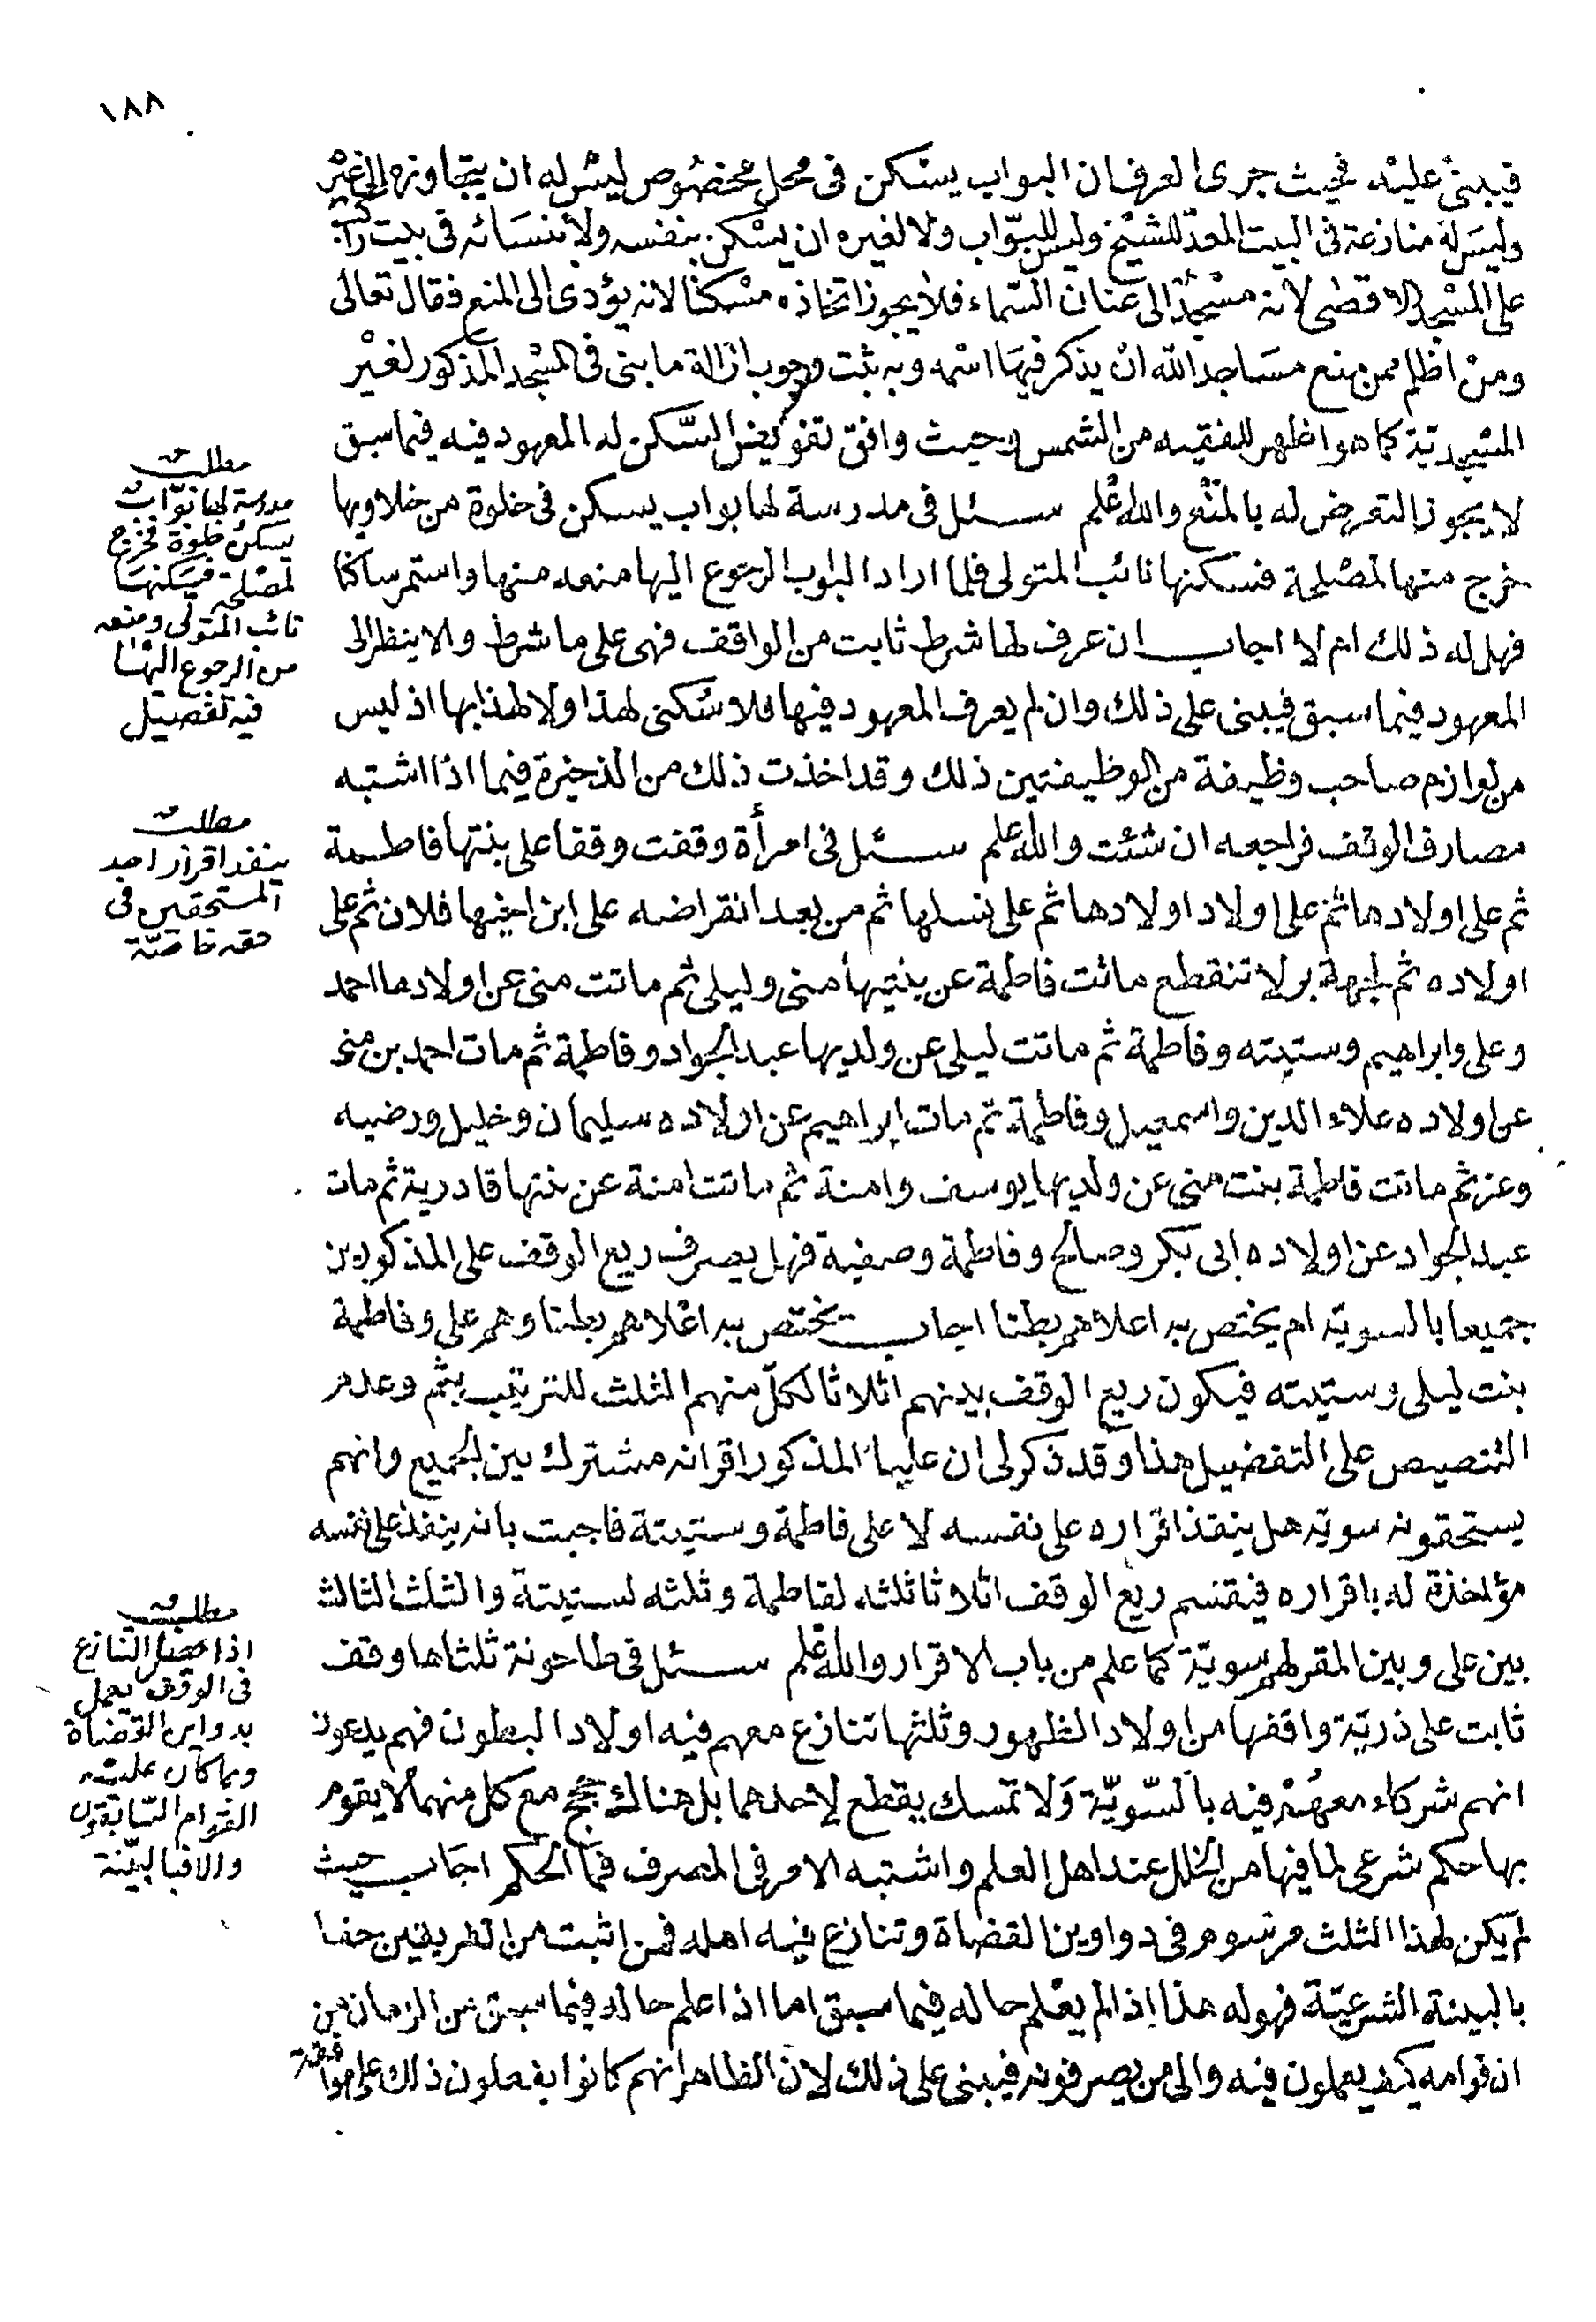 ١٨٨
فيبنى عليه فحيث جرى العرف ان البواب يسكن فى محل مخصوص ليس له ان يتجاوزه الى غيره
وليس له منازعة فى البيت المعد للشيخ وليس للبواب ولا لغيره ان يسكن بنفسه ولا بنسائه فى بيت راكب
على المسجد الاقصى لانه مسجد الى عنان السماء فلا يجوز اتخاذه مسكنا لانه يؤدى الى المنع فقال تعالى
ومن اظلم ممن منع مساجد الله ان يذكر فيها اسمه وبه ثبت وجوب ازالة ما بنى فى المسجد المذكور لغير
المسجدية كما هو اظهر للفقيه من الشمس وحيث وافق تفويض السكن له المعهود فيه فيما سبق
لا يجوز التعرض له بالمنع والله اعلم سئل فى مدرسة لها بواب يسكن فى خلوة من خلاويها
خرج منها لمصلحة فسكنها نائب المتولى فلما اراد البواب الرجوع اليها منعه منها واستمر ساكنا
فهل له ذلك ام لا اجاب ان عرف لها شرط ثابت من الواقف فهى على ما شرط والا ينظر الى
المعهود فيما سبق فيبنى على ذلك وان لم يعرف المعهود فيها فلا سكنى لهذا ولا لهذا بها اذ ليس
من لوازم صاحب وظيفة من الوظيفتين ذلك وقد اخذت ذلك من الذخيرة فيما اذا اشتبه
مصارف الوقف فراجعه ان شئت والله اعلم سئل فى امرأة وقفت وقفا على بنتها فاطمة
ثم على اولادها ثم على اولاد اولادها ثم على نسلها ثم من بعد انقراضه على ابن اخيها فلان ثم على
اولاده ثم لجهة بر لا تنقطع ماتت فاطمة عن بنتيها منى وليلى ثم ماتت منى عن اولادها احمد
وعلى وابراهيم وستيته وفاطمة ثم ماتت ليلى عن ولديها عبد الجواد وفاطمة ثم مات احمد بن منى
عن اولاده علاء الدين واسمعيل وفاطمة ثم مات ابراهيم عن اولاده سليمان وخليل ورضيه
وعز ثم ماتت فاطمة بنت منى عن ولديها يوسف وامنة ثم ماتت امنة عن بنتها قادرية ثم مات
عبد الجواد عن اولاده ابى بكر وصالح وفاطمة وصفية فهل يصرف ريع الوقف على المذكورين
جميعا بالسوية ام يختص به اعلاهم بطنا اجاب يختص به اعلاهم بطنا وهم على وفاطمة
بنت ليلى وستيته فيكون ريع الوقف بينهم اثلاثا لكل منهم الثلث للترتيب بثم وعدم
التنصيص على التفضيل هذا وقد ذكر لى ان عليا المذكور اقر انه مشترك بين الجميع وانهم
يستحقونه سوية هل ينفذ اقراره على نفسه لا على فاطمة وستيتة فاجبت بانه ينفذ على نفسه
مؤاخذة له باقراره فيقسم ريع الوقف اثلاثا ثلثه لفاطمة وثلثه لستيتة والثلث الثالث
بين على وبين المقر لهم سوية كما علم من باب الاقرار والله اعلم سئل فى طاحونة ثلثاها وقف
ثابت على ذرية واقفها من اولاد الظهور وثلثها تنازع معهم فيه اولاد البطون فهم يدعون
انهم شركاء معهم فيه بالسوية ولا تمسك يقطع لاحدهما بل هنالك حجج مع كل منهما لا يقوم
بها حكم شرعى لما فيها من الخلل عند اهل العلم واشتبه الامر فى المصرف فما الحكم اجاب حيث
لم يكن لهذا الثلث مرسوم فى دواوين القضاة وتنازع فيه اهله فمن اثبت من الفريقين حقا
بالبينة الشرعية فهو له هذا اذا لم يعلم حاله فيما سبق اما اذا علم حاله فيما سبق من الزمان من
ان قوامه كيف يعملون فيه والى من يصرفونه فيبنى على ذلك لان الظاهر انهم كانوا يفعلون ذلك على موافقة
مطلب
مدرسة لها بواب
يسكن خلوة فخرج
لمصلحة فيسكنها
نائب المتولى ومنعه
من الرجوع اليها
فيه تفصيل
مطلب
ينفذ اقرار احد
المستحقين فى
حقه خاصة
مطلب
اذا حصل التنازع
فى الوقف يعمل
بدواوين القضاة
وبما كان عليه
القوام السابقون
والا فبالبينة